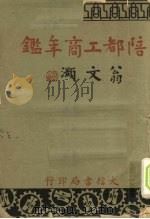 陪都工商年鑑
翁文灝
大信書局印行